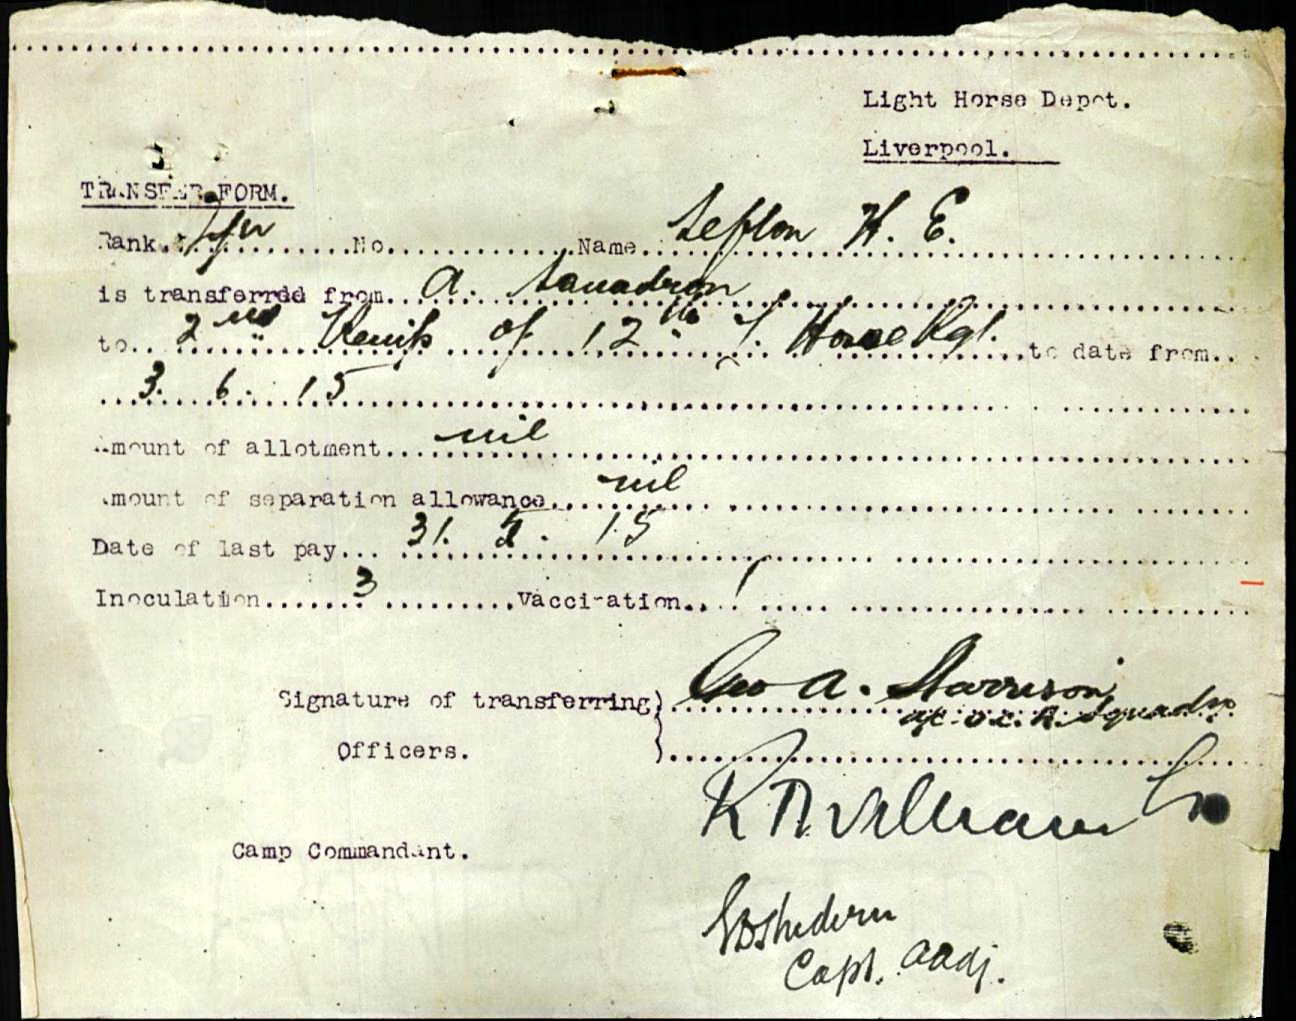 Light Horse Depot.
Liverpool.
TRANSFER FORM.
Rank............No..............Name.. Sefton H. E.
is transferred from... A. Squadron
to... 2nd Reinfs of 12th L Horse Rgt. to date from..
3. 6. 15
Amount of allotment.... nil
Amount of separation allowance... nil
Date of last pay... 31. 5. 15
Inoculation....... 3 .........Vaccination... 1
Signature of transferring) Geo A. Harrison
O.C. A. Squadn
Officers. )
Camp Commandant.
Capt. aadj.